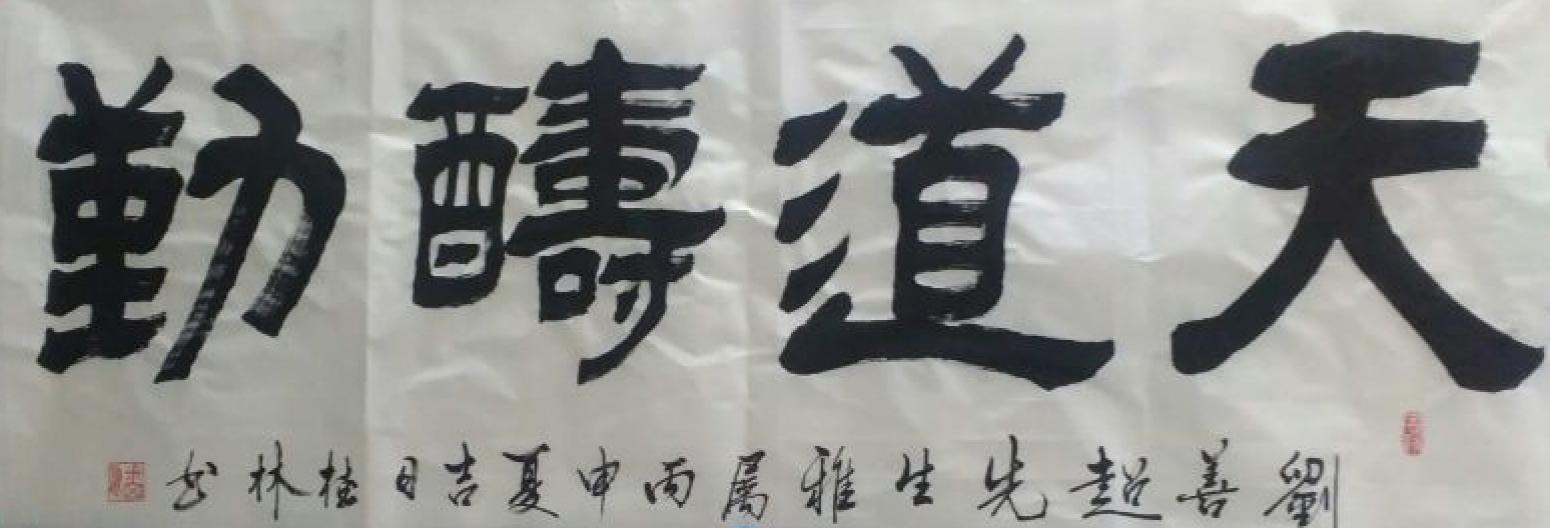 天道醻勤
劉善超先生雅属丙申夏吉日桂林书